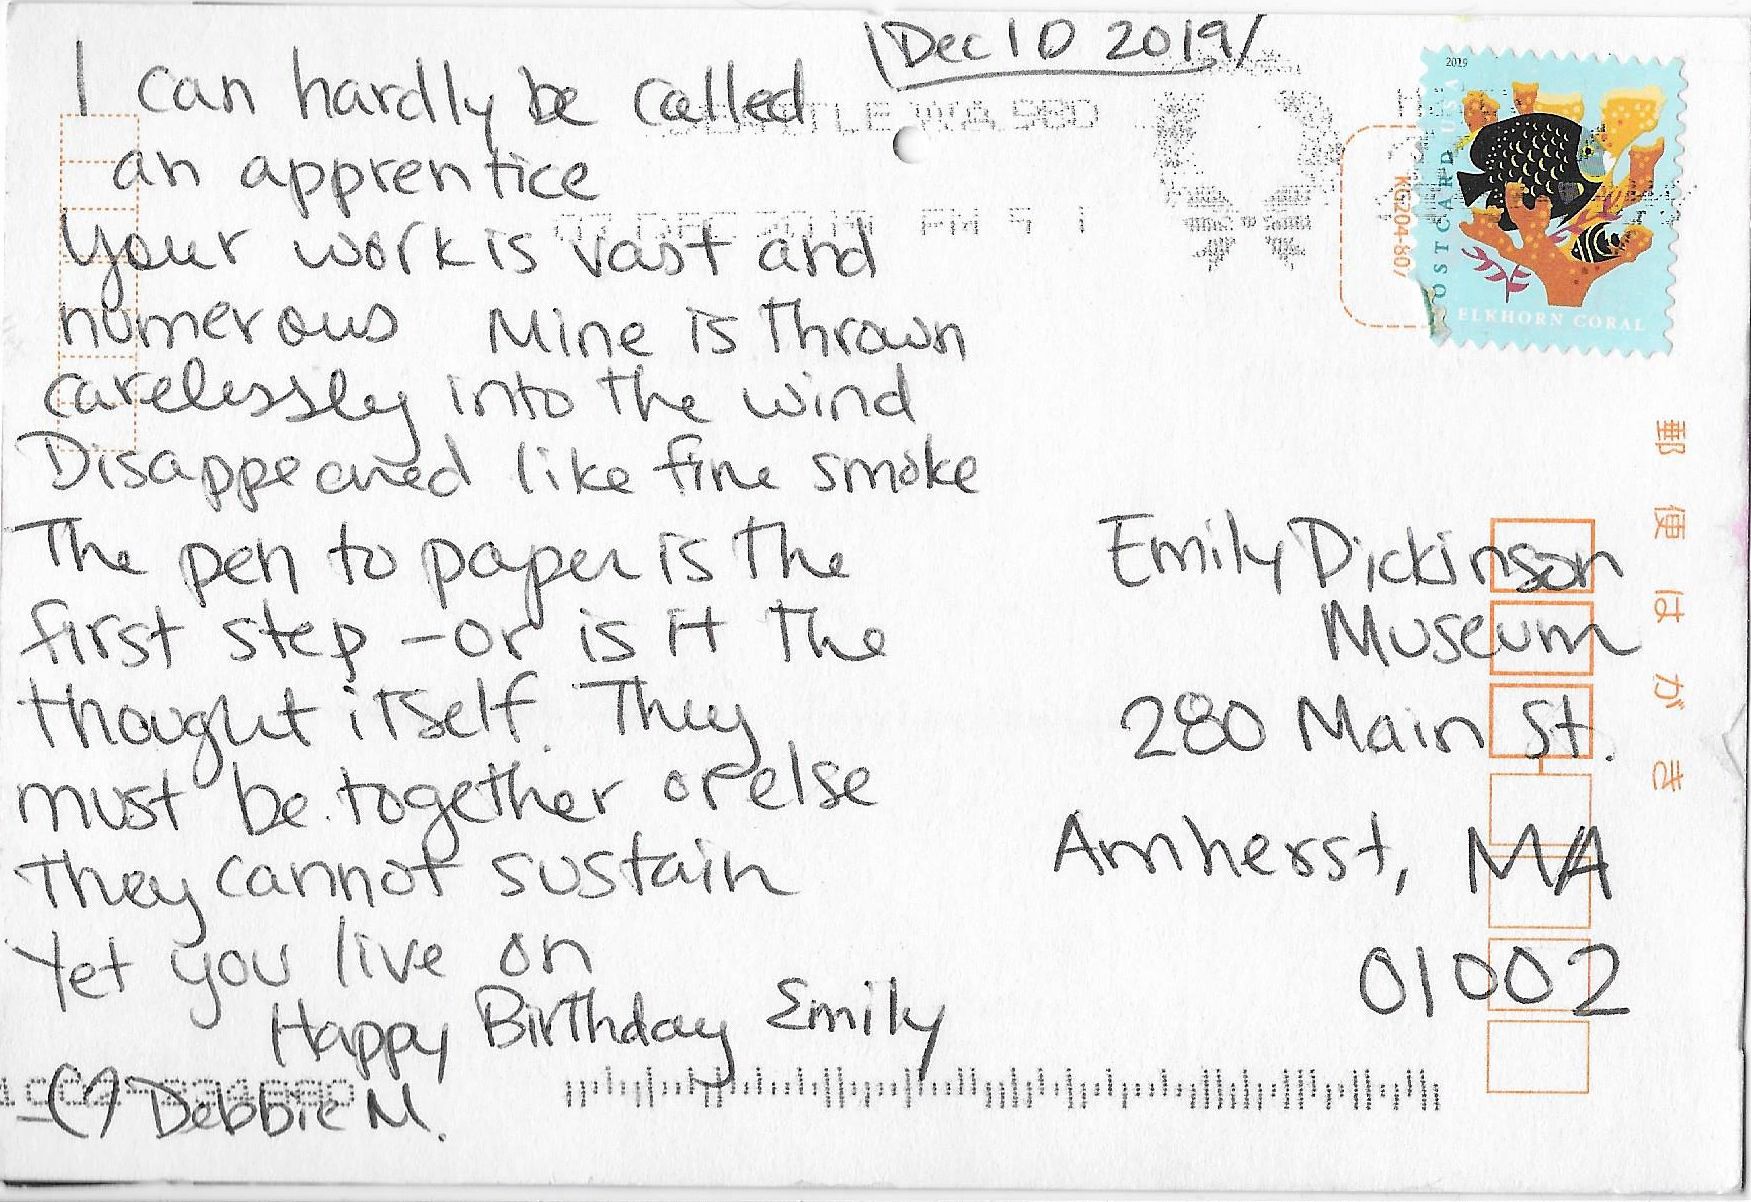 Dec 10 2019
I can hardly be called
an apprentice
Your work is vast and
numerous Mine is thrown
carelessly into the wind
Disappeared like fine smoke
The pen to paper is the
first step - or is it the
thought itself. They
must be together or else
they cannot sustain
Yet you live on
Happy Birthday Emily
Debbie M.
SEATTLE WA 980
07 DEC 2019 PM 5 L
2019
POSTCARD USA
ELKHORN CORAL
KG204-807
郵便はがき
Emily Dickinson
Museum
280 Main St.
Amherst, MA
01002